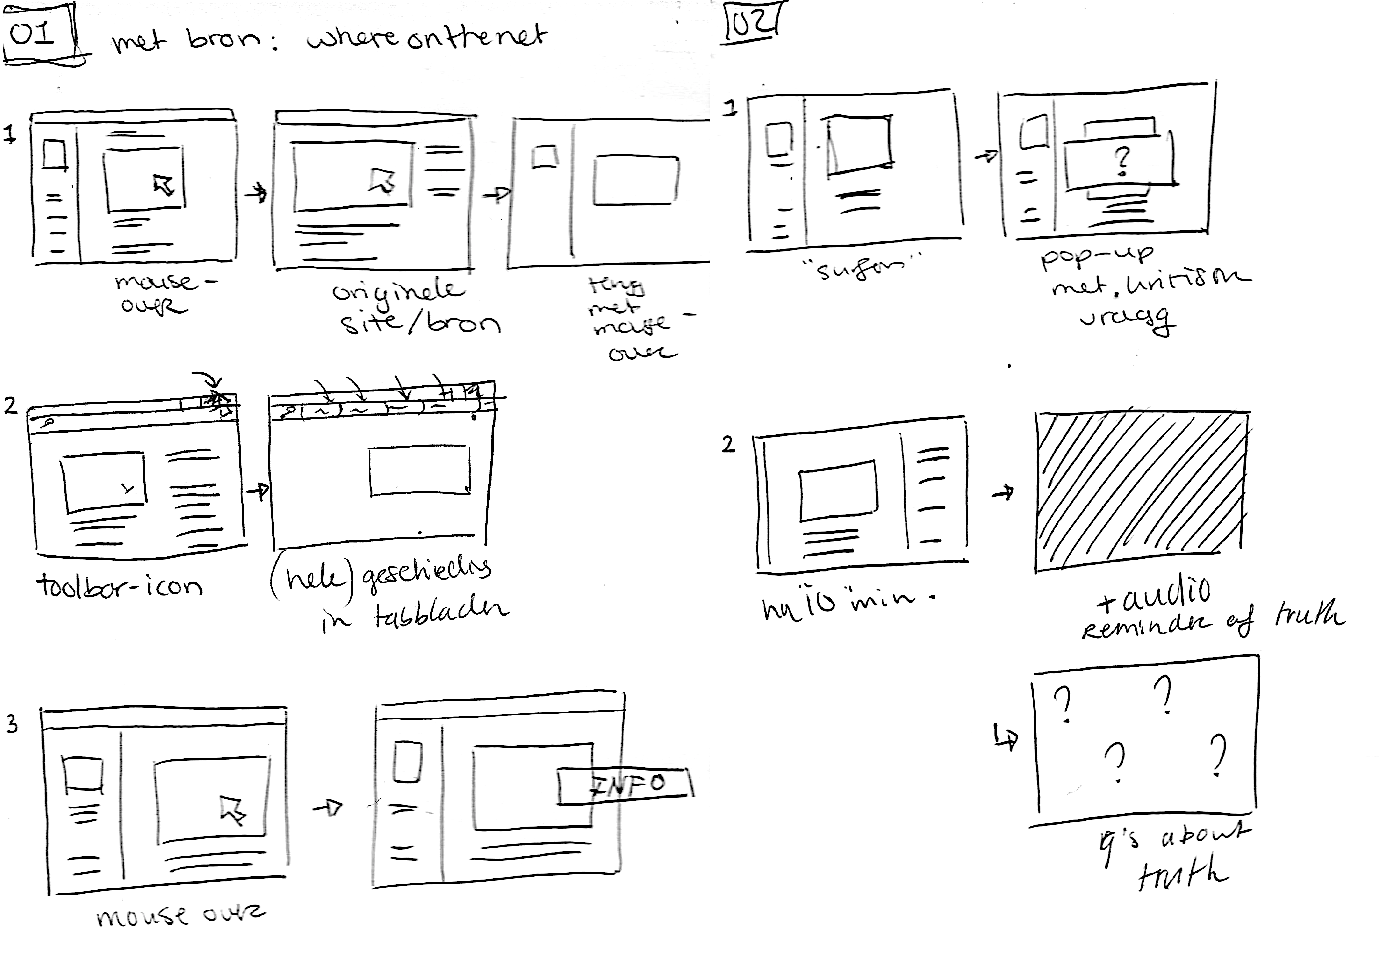 01 met bron: whereonthenet
1
mouse-
over
originele
site/bron
terug
met
mouse-
over
2
toolbar-icon
(hele) geschiedenis
in tabbladen
3
INFO
mouse over
02
1
"surfen"
pop-up
met kritische
vraag
?
2
na "10" min.
+ audio
reminder of truth
? ?
? ?
q's about
truth